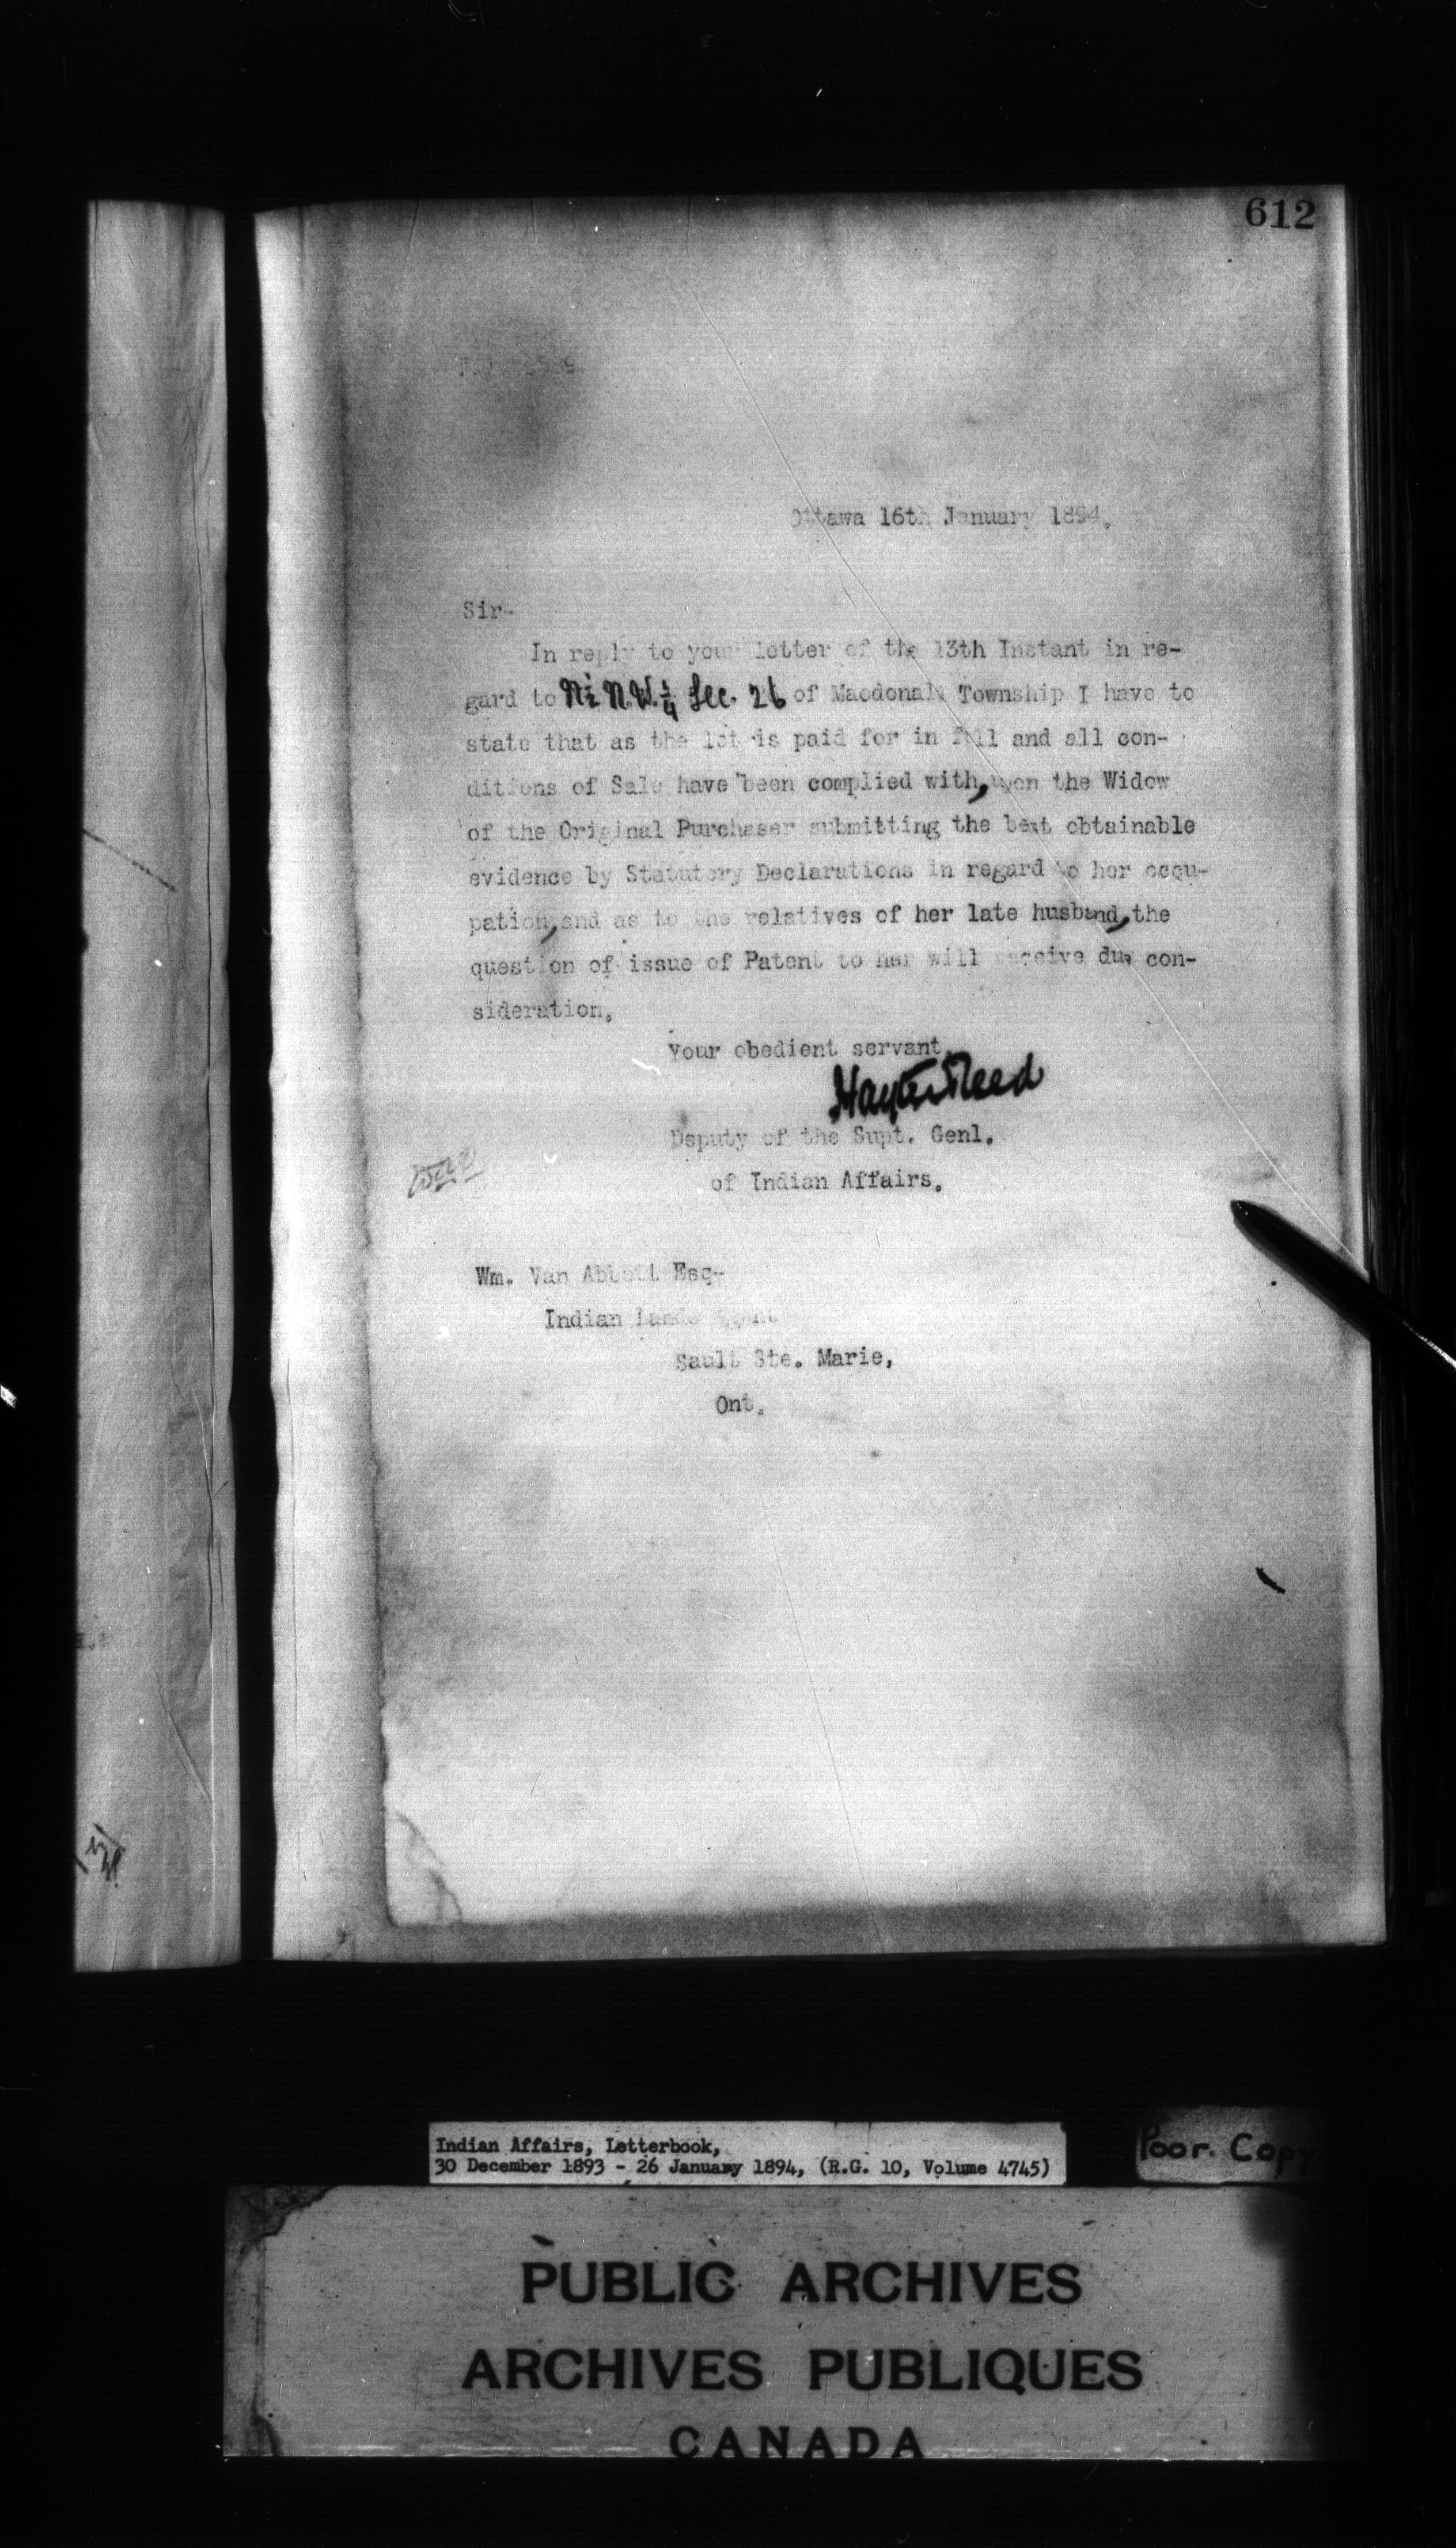 612
Ottawa 16th January 1894.
Sir-
In reply to your letter of the 13th Instant in re-
gard to N½ N.W.¼ Sec. 26 of Macdonald Township I have to
state that as the lot is paid for in full and all con-
ditions of Sale have been complied with, upon the Widow
of the Original Purchaser submitting the best obtainable
evidence by Statutory Declarations in regard to her occu-
pation, and as to the relatives of her late husband, the
question of issue of Patent to her will receive due con-
sideration.
Your obedient servant,
Hayter Reed
Deputy of the Supt. Genl.
of Indian Affairs.
Wm. Van Abbott Esq-
Indian Lands Agent
Sault Ste. Marie,
Ont.
Indian Affairs, Letterbook,
30 December 1893 - 26 January 1894, (R.G. 10, Volume 4745)
Poor. Copy
PUBLIC ARCHIVES
ARCHIVES PUBLIQUES
CANADA